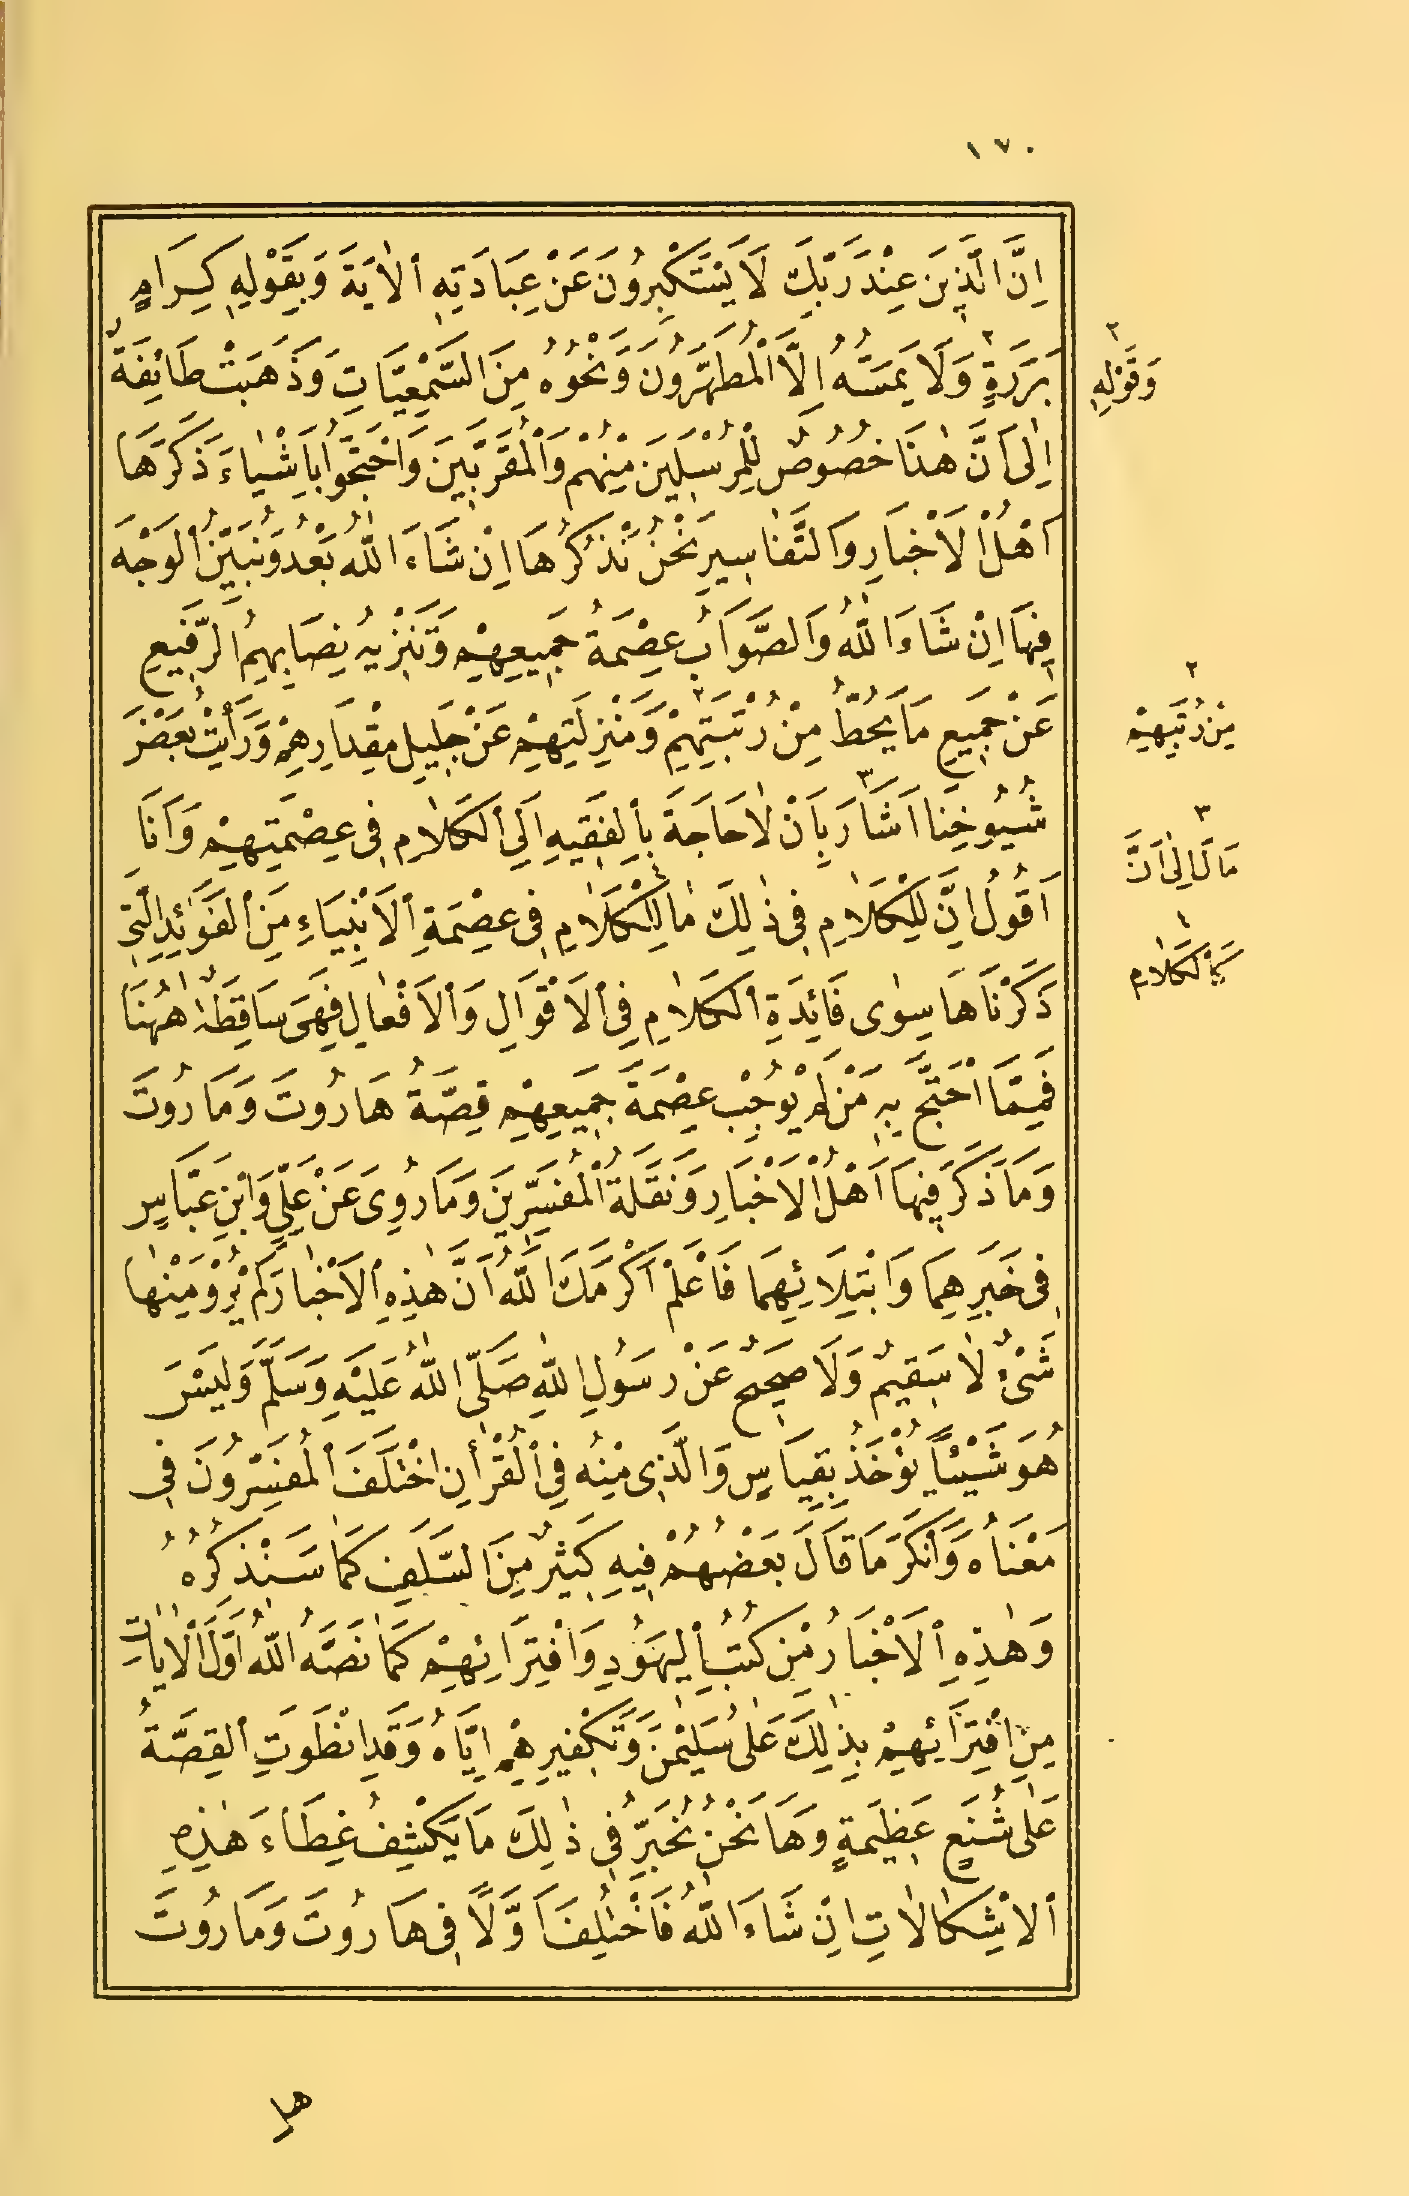 ١٧٠
اِنَّ الَّذِينَ عِنْدَ رَبِّكَ لَا يَسْتَكْبِرُونَ عَنْ عِبَادَتِهِ اْلاٰيَةَ وَبِقَوْلِهِ كِرَامٍ
بَرَرَةٍ ٢ وَلَا يَمَسُّهُ اِلَّا الْمُطَهَّرُونَ وَنَحْوُهُ مِنَ السَّمْعِيَّاتِ وَذَهَبَتْ طَائِفَةٌ
٢ وَقَوْلِهِ
اِلٰى اَنَّ هٰذَا خُصُوصٌ لِلْمُرْسَلِينَ مِنْهُمْ وَالْمُقَرَّبِينَ وَاحْتَجُّوا بِاَشْيَاءَ ذَكَرَهَا
اَهْلُ الْاَخْبَارِ وَالتَّفَاسِيرِ نَحْنُ نَذْكُرُهَا اِنْ شَاءَ اللّٰهُ بَعْدُ وَنُبَيِّنُ الْوَجْهَ
فِيهَا اِنْ شَاءَ اللّٰهُ وَالصَّوَابُ عِصْمَةُ جَمِيعِهِمْ وَتَنْزِيهُ نِصَابِهِمُ الرَّفِيعِ
عَنْ جَمِيعِ مَا يَحُطُّ مِنْ رُتْبَتِهِمْ ٢ وَمَنْزِلَتِهِمْ عَنْ جَلِيلِ مِقْدَارِهِمْ وَرَأَيْتُ بَعْضَ
٢ مِنْ رُتَبِهِمْ
شُيُوخِنَا اَشَارَ ٣ بِاَنْ لَا حَاجَةَ بِالْفَقِيهِ اِلَى الْكَلَامِ فِى عِصْمَتِهِمْ وَاَنَا
٣ مَالَ اِلٰى اَنَّ
اَقُولُ اِنَّ لِلْكَلَامِ فِى ذٰلِكَ مَا لِلْكَلَامِ ٤ فِى عِصْمَةِ الْاَنْبِيَاءِ مِنَ الْفَوَائِدِ الَّتِى
٤ كَالْكَلَامِ
ذَكَرْنَاهَا سِوٰى فَائِدَةِ الْكَلَامِ فِى الْاَقْوَالِ وَالْاَفْعَالِ فَهِىَ سَاقِطَةٌ هٰهُنَا
فَمِمَّا احْتَجَّ بِهِ مَنْ لَمْ يُوجِبْ عِصْمَةَ جَمِيعِهِمْ قِصَّةُ هَارُوتَ وَمَارُوتَ
وَمَا ذَكَرَ فِيهَا اَهْلُ الْاَخْبَارِ وَنَقَلَةُ الْمُفَسِّرِينَ وَمَا رُوِىَ عَنْ عَلِيٍّ وَابْنِ عَبَّاسٍ
فِى خَبَرِهِمَا وَابْتِلَائِهِمَا فَاعْلَمْ اَكْرَمَكَ اللّٰهُ اَنَّ هٰذِهِ الْاَخْبَارَ لَمْ يُرْوَ مِنْهَا
شَىْءٌ لَا سَقِيمٌ وَلَا صَحِيحٌ عَنْ رَسُولِ اللّٰهِ صَلَّى اللّٰهُ عَلَيْهِ وَسَلَّمَ وَلَيْسَ
هُوَ شَيْئًا يُؤْخَذُ بِقِيَاسٍ وَالَّذِى مِنْهُ فِى الْقُرْاٰنِ اخْتَلَفَ الْمُفَسِّرُونَ فِى
مَعْنَاهُ وَاَنْكَرَ مَا قَالَ بَعْضُهُمْ فِيهِ كَثِيرٌ مِنَ السَّلَفِ كَمَا سَنَذْكُرُهُ
وَهٰذِهِ الْاَخْبَارُ مِنْ كُتُبِ الْيَهُودِ وَافْتِرَائِهِمْ كَمَا نَصَّهُ اللّٰهُ اَوَّلَ الْاٰيَاتِ
مِنِ افْتِرَائِهِمْ بِذٰلِكَ عَلٰى سُلَيْمٰنَ وَتَكْفِيرِهِمْ اِيَّاهُ وَقَدِ انْطَوَتِ الْقِصَّةُ
عَلٰى شُنَعٍ عَظِيمَةٍ وَهَا نَحْنُ نُحَبِّرُ فِى ذٰلِكَ مَا يَكْشِفُ غِطَاءَ هٰذِهِ
الْاِشْكَالَاتِ اِنْ شَاءَ اللّٰهُ فَاخْتُلِفَ اَوَّلًا فِى هَارُوتَ وَمَارُوتَ
هل